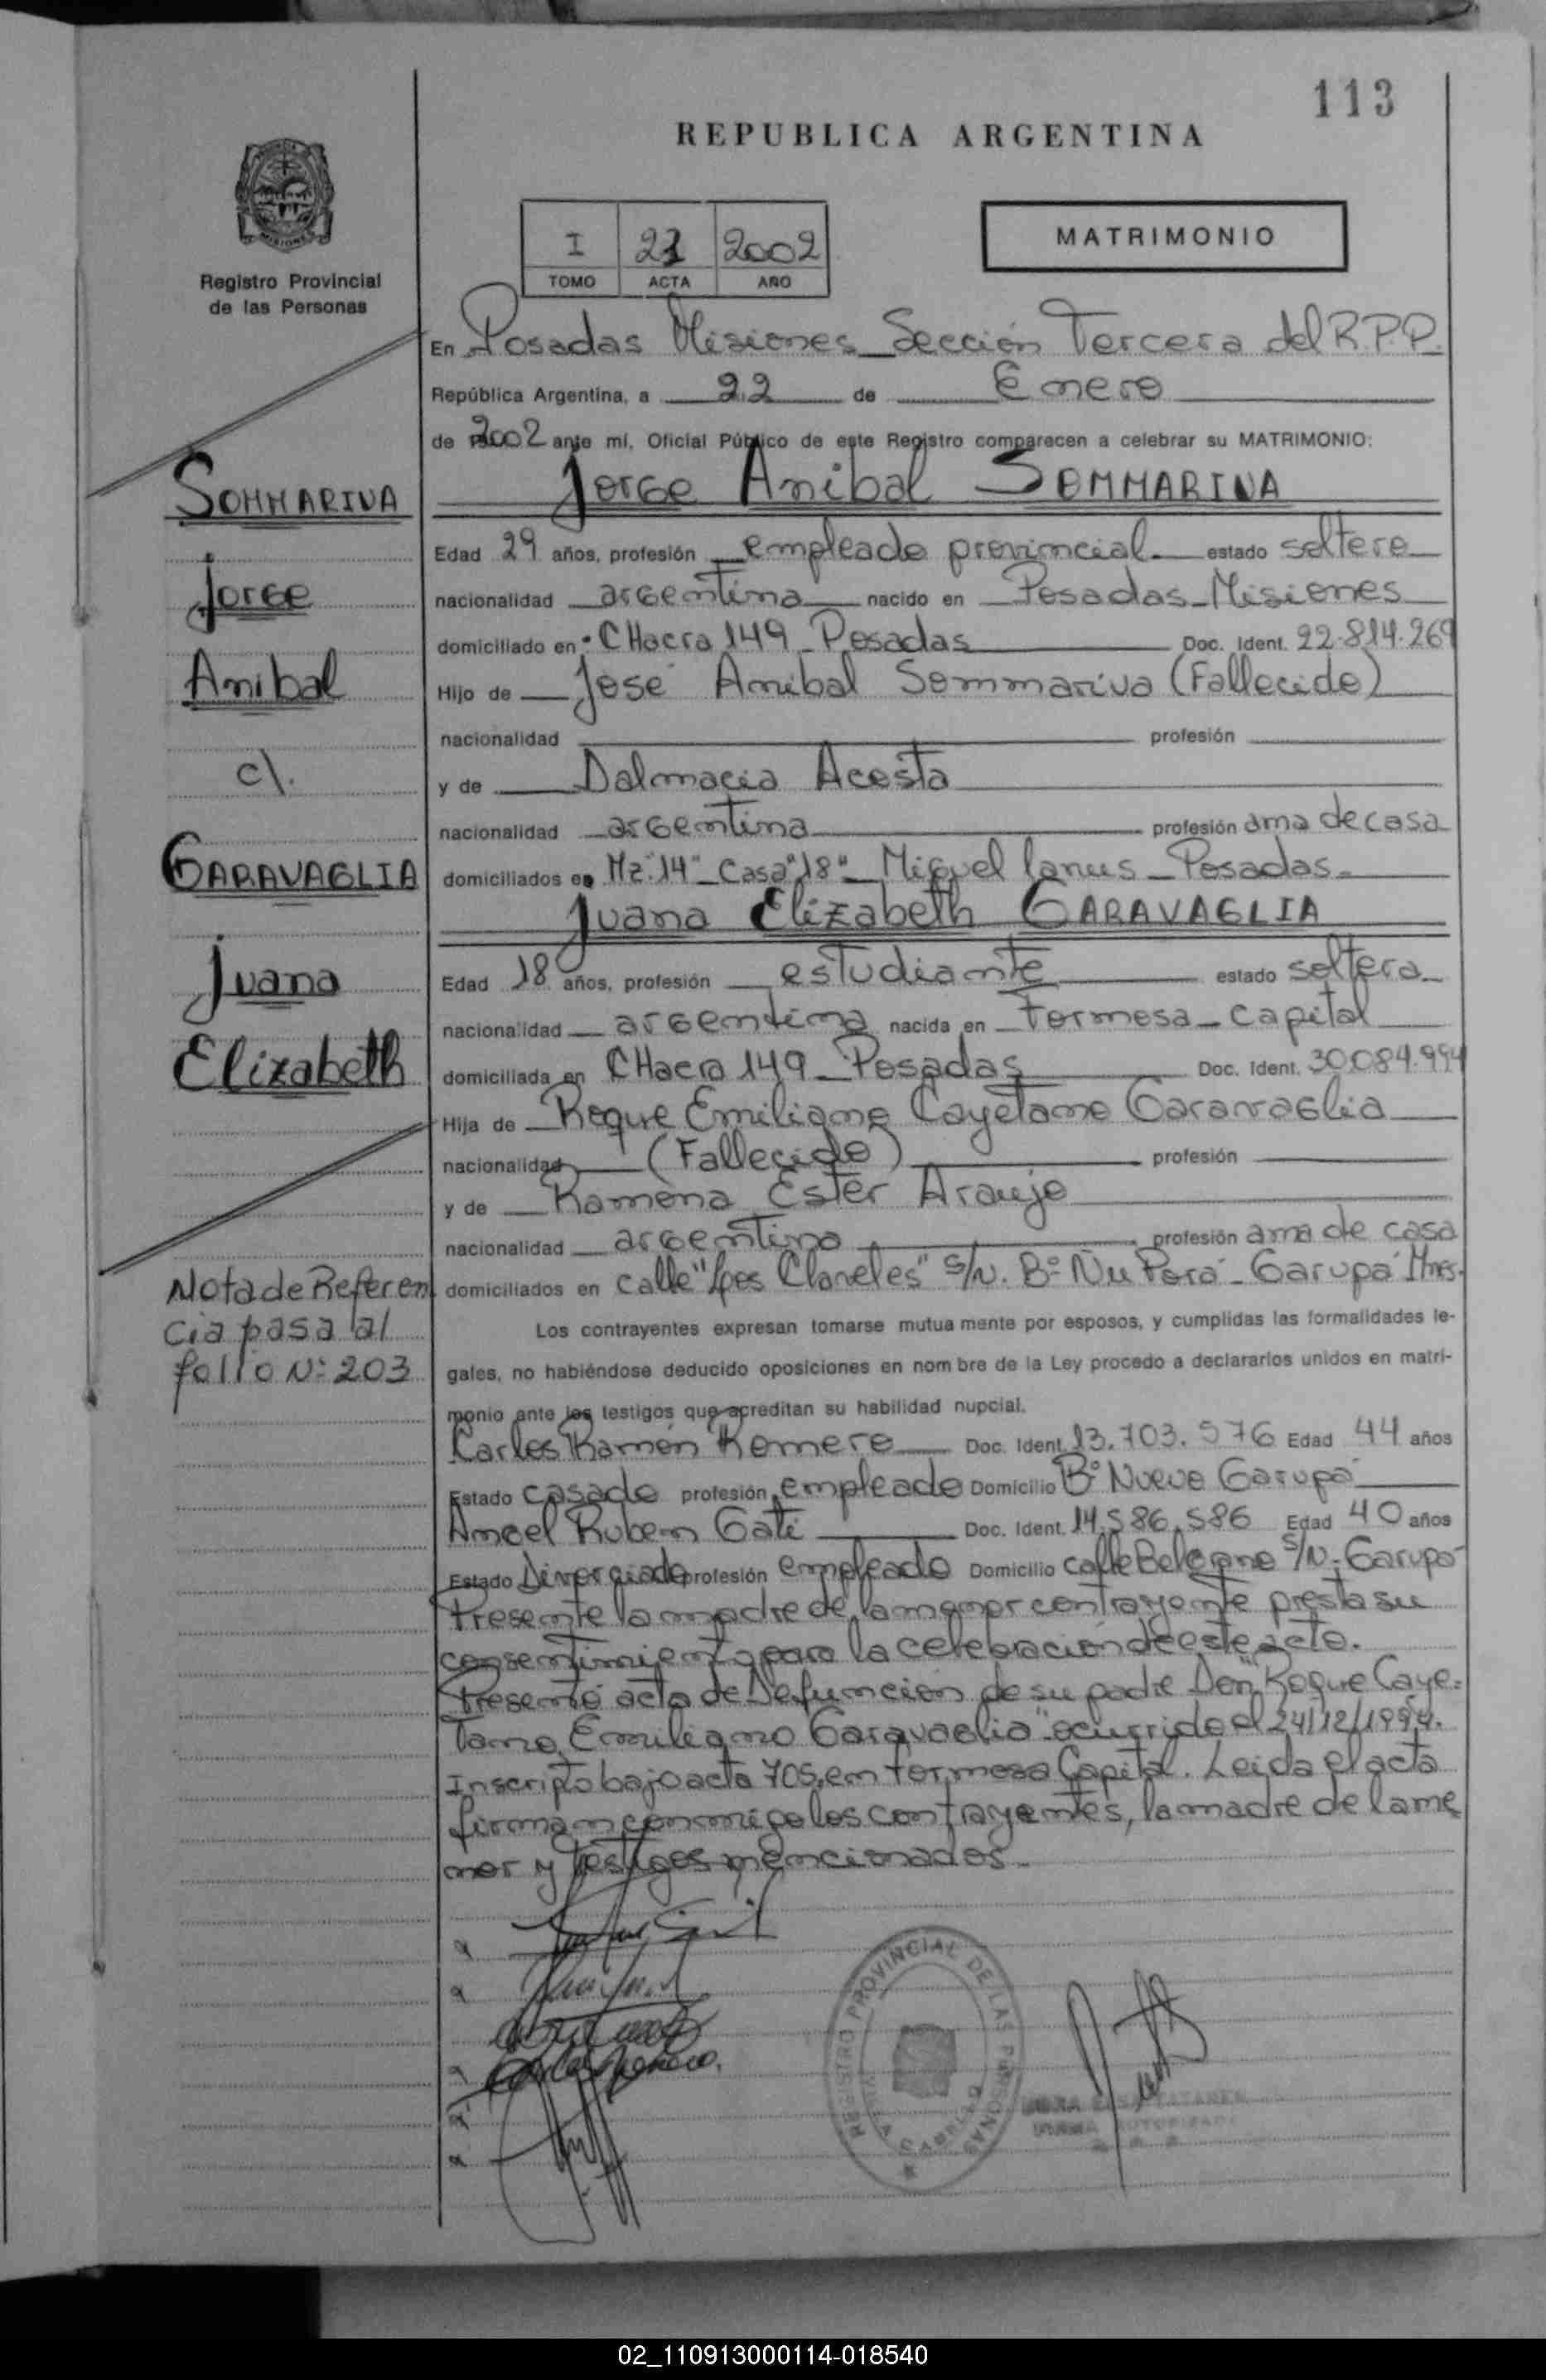 113
REPUBLICA ARGENTINA
Registro Provincial
de las Personas
I 21 2002
TOMO ACTA AÑO
MATRIMONIO
En Posadas Misiones Sección Tercera del R.P.P.
República Argentina, a 22 de Enero
de 2002 ante mí, Oficial Público de este Registro comparecen a celebrar su MATRIMONIO:
SOMMARIVA
Jorge
Anibal
c/.
GARAVAGLIA
Juana
Elizabeth
Nota de Referen
cia pasa al
folio Nº 203
Jorge Anibal SOMMARIVA
Edad 29 años, profesión empleado provincial estado soltero
nacionalidad argentina nacido en Posadas - Misiones
domiciliado en CHacra 149 - Posadas Doc. Ident. 22.814.269
Hijo de José Anibal Sommariva (Fallecido)
nacionalidad profesión
y de Dalmacia Acosta
nacionalidad argentina profesión ama de casa
domiciliados en Mz "14" - Casa "18" - Miguel Lanus - Posadas -
Juana Elizabeth GARAVAGLIA
Edad 18 años, profesión estudiante estado soltera
nacionalidad argentina nacida en Formosa - Capital
domiciliada en CHacra 149 - Posadas Doc. Ident. 30.084.994
Hija de Roque Emiliano Cayetano Garavaglia
nacionalidad (Fallecido) profesión
y de Ramona Ester Araujo
nacionalidad argentina profesión ama de casa
domiciliados en calle "Los Claveles" S/N. Bº Ñu Porá - Garupá Mnes.
Los contrayentes expresan tomarse mutua mente por esposos, y cumplidas las formalidades le-
gales, no habiéndose deducido oposiciones en nom bre de la Ley procedo a declararlos unidos en matri-
monio ante los testigos que acreditan su habilidad nupcial.
Carlos Ramón Romero Doc. Ident. 13.703.576 Edad 44 años
Estado casado profesión empleado Domicilio Bº Nuevo Garupá
Angel Ruben Gati Doc. Ident. 14.586.586 Edad 40 años
Estado Divorciado profesión empleado Domicilio calle Belgrano S/N - Garupá
Presente la madre de la menor contrayente presta su
consentimiento para la celebración de este acto.
Presentó acta de Defunción de su padre Don "Roque Caye-
tano Emiliano Garavaglia" ocurrido el 24/12/1994.
Inscripto bajo acta 705, en Formosa Capital. Leida el acta
firman conmigo los contrayentes, la madre de la me
nor y testigos mencionados -
REGISTRO PROVINCIAL DE LAS PERSONAS
02_110913000114-018540